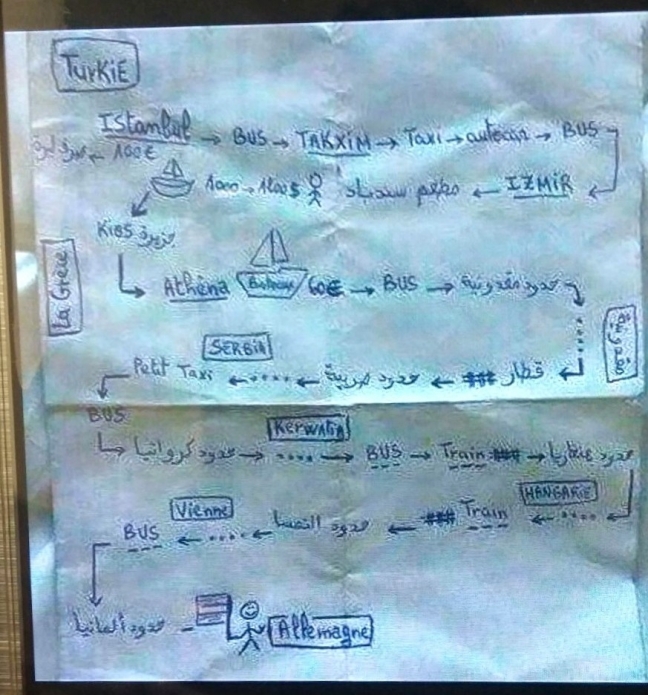 TurKiE
Istanbul → BUS → TAKXIM → Taxi → autocar → BUS
100€ ←
1000 → 1200$ مطعم سندباد ← IZMIR
Kios جزيرة
La Grèce
Athéna Bateau 60€ → BUS → حدود مقدونية
مقدونية
SERBIA
Petit Taxi ← .... ← حدود صربية ← قطار
BUS
KerwaTia
حدود كرواتيا → .... → BUS → Train → حدود هنغاريا
HANGARIE
Vienne
BUS ← .... ← حدود النمسا ← Train ← ....
حدود ألمانيا - Allemagne